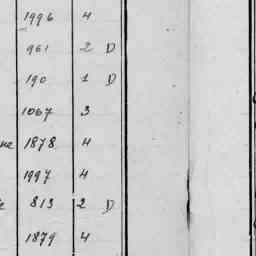 1996 4
961 2 D
190 1 D
1067 3
1878 4
1997 4
813 2 D
1879 4